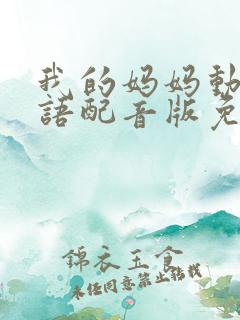 我的妈妈動
語配音版免
錦衣玉食
未任同意禁止转载